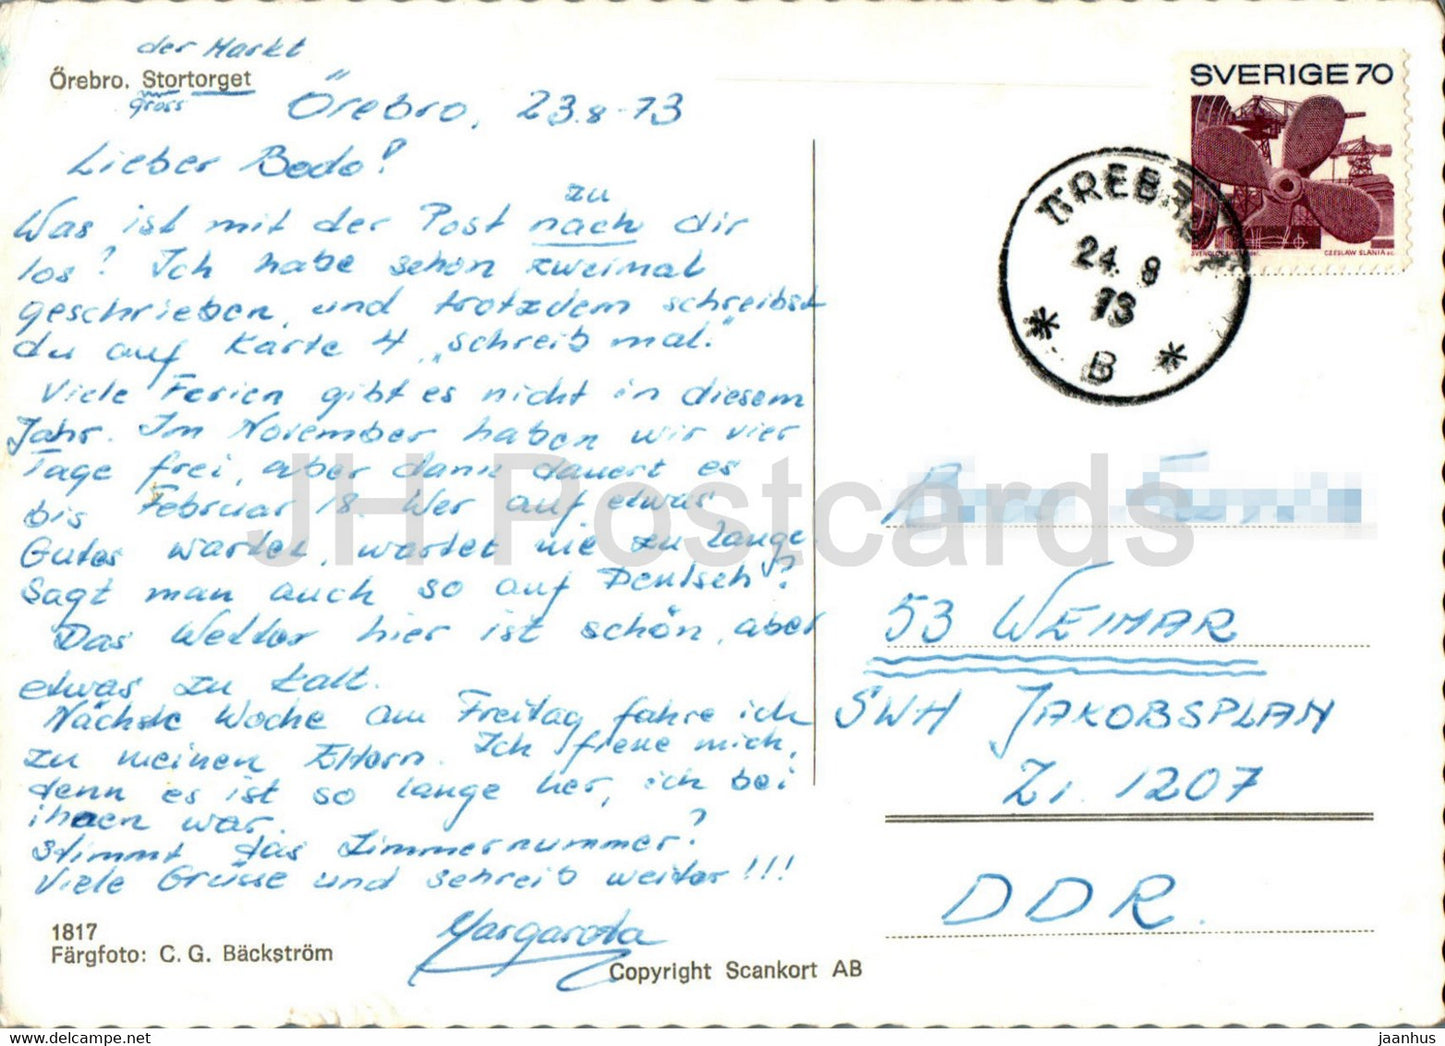 der Markt
Örebro. Stortorget
gross
Örebro, 23.8-73
Lieber Bodo!
zu
Was ist mit der Post nach dir
los? Ich habe schon zweimal
geschrieben, und trotzdem schreibst
du auf Karte 4 „schreib mal."
Viele Ferien gibt es nicht in diesem
Jahr. Im November haben wir vier
Tage frei, aber dann dauert es
bis Februar 18. Wer auf etwas
Gutes wartet, wartet nie zu lange.
Sagt man auch so auf Deutsch?
Das Wetter hier ist schön, aber
etwas zu kalt.
Nächste Woche am Freitag fahre ich
zu meinen Eltern. Ich freue mich,
denn es ist so lange her, ich bei
ihnen war.
Stimmt das Zimmernummer?
Viele Grüsse und schreib weiter!!!
Margareta
1817
Färgfoto: C. G. Bäckström
Copyright Scankort AB
SVERIGE 70
CZESLAW SLANIA sc.
ÖREBRO
24. 8
73
* B *
53 WEIMAR
SWH JAKOBSPLAN
Zi. 1207
DDR.
JH Postcards
delcampe.net
jaanhus